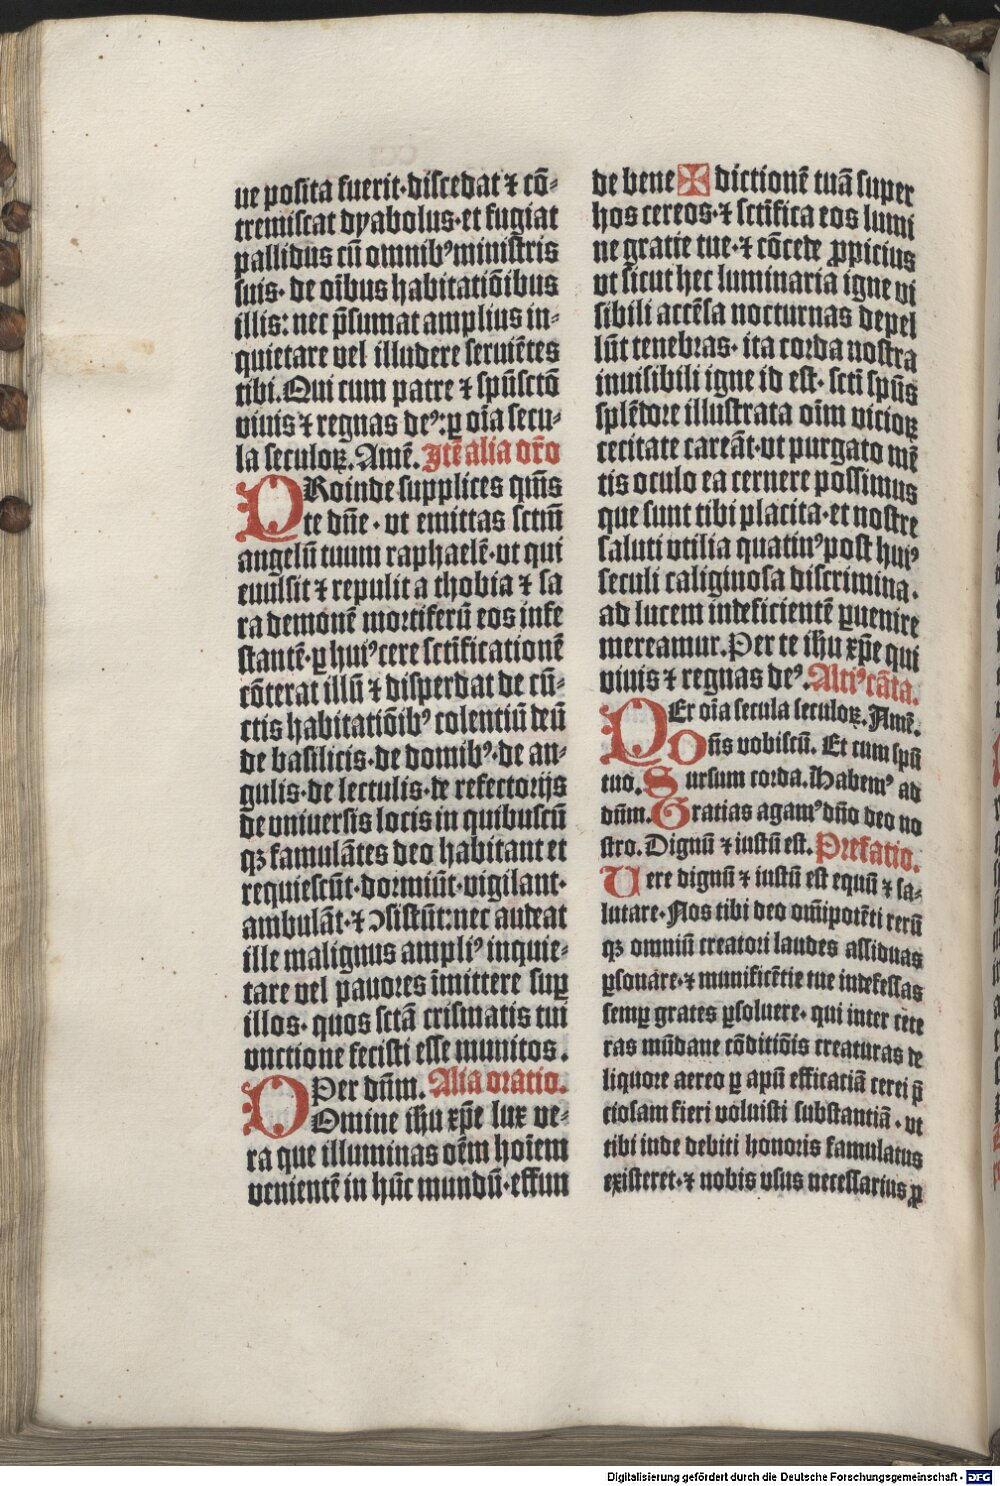 ne posita fuerit·discedat ⁊ cō-
tremiscat dyabolus·et fugiat
pallidus cū omnibꝰ ministris
suis· de oībus habitatiōibus
illis: nec p̄sumat amplius in-
quietare vel illudere seruiētes
tibi. Qui cum patre ⁊ spūsctō
viuis ⁊ regnas deꝰ: ꝑ oīa secu-
la seculoꝝ. Amē. Itē alia or̄o
PRoinde supplices qms̄
te dn̄e · vt emittas sctm̄
angelū tuum raphaelē·vt qui
euulsit ⁊ repulit a thobia ⁊ sa
ra demonē mortiferū eos infe
stantē·ꝑ huiꝰ cere sctīficationē
cōterat illū ⁊ disperdat de cū-
ctis habitatiōibꝰ colentiū deū
de basilicis·de domibꝰ·de an-
gulis·de lectulis·de refectorijs
de vniuersis locis in quibuscū
qꝫ famulātes deo habitant et
requiescūt·dormiūt·vigilant·
ambulāt·⁊ ɔsistūt: nec audeat
ille malignus ampliꝰ inquie-
tare vel pauores īmittere suꝑ
illos· quos sctā crismatis tui
vnctione fecisti esse munitos.
Per dn̄m. Alia oratio.
DOmine ihū xp̄e lux ve-
ra que illuminas oēm hoīem
venientē in hūc mundū·effun
de bene ✠ dictionē tuā super
hos cereos·⁊ sctīfica eos lumi
ne gratie tue·⁊ cōcede ꝓpicius
vt sicut hec luminaria igne vi
sibili accēsa nocturnas depel
lūt tenebras· ita corda nostra
inuisibili igne id est· scti spūs
splēdore illustrata oīm vicioꝝ
cecitate careāt·vt purgato mē
tis oculo ea cernere possimus
que sunt tibi placita·et nostre
saluti vtilia quatinꝰ post huiꝰ
seculi caliginosa discrimina·
ad lucem indeficientē ꝑuenire
mereamur. Per te ihū xp̄e qui
viuis ⁊ regnas deꝰ. Altiꝰ cāta.
PEr oīa secula seculoꝝ. Amē.
Dn̄s vobiscū. Et cum spū
tuo. Sursum corda. Habemꝰ ad
dn̄m. Gratias agamꝰ dn̄o deo no
stro. Dignū ⁊ iustū est. Prefatio.
Vere dignū ⁊ iustū est equū ⁊ sa-
lutare· Nos tibi deo om̄ipotēti rerū
qꝫ omniū creatori laudes assiduas
ꝑsonare·⁊ munificētie tue indefessas
semꝑ grates ꝑsoluere· qui inter cete
ras mūdane cōditiōis creaturas de
liquore aereo ꝑ apū efficaciā cerei p̄
ciosam fieri voluisti substantiā · vt
tibi inde debiti honoris famulatus
existeret·⁊ nobis vsus necessarius ꝓ
Digitalisierung gefördert durch die Deutsche Forschungsgemeinschaft - DFG